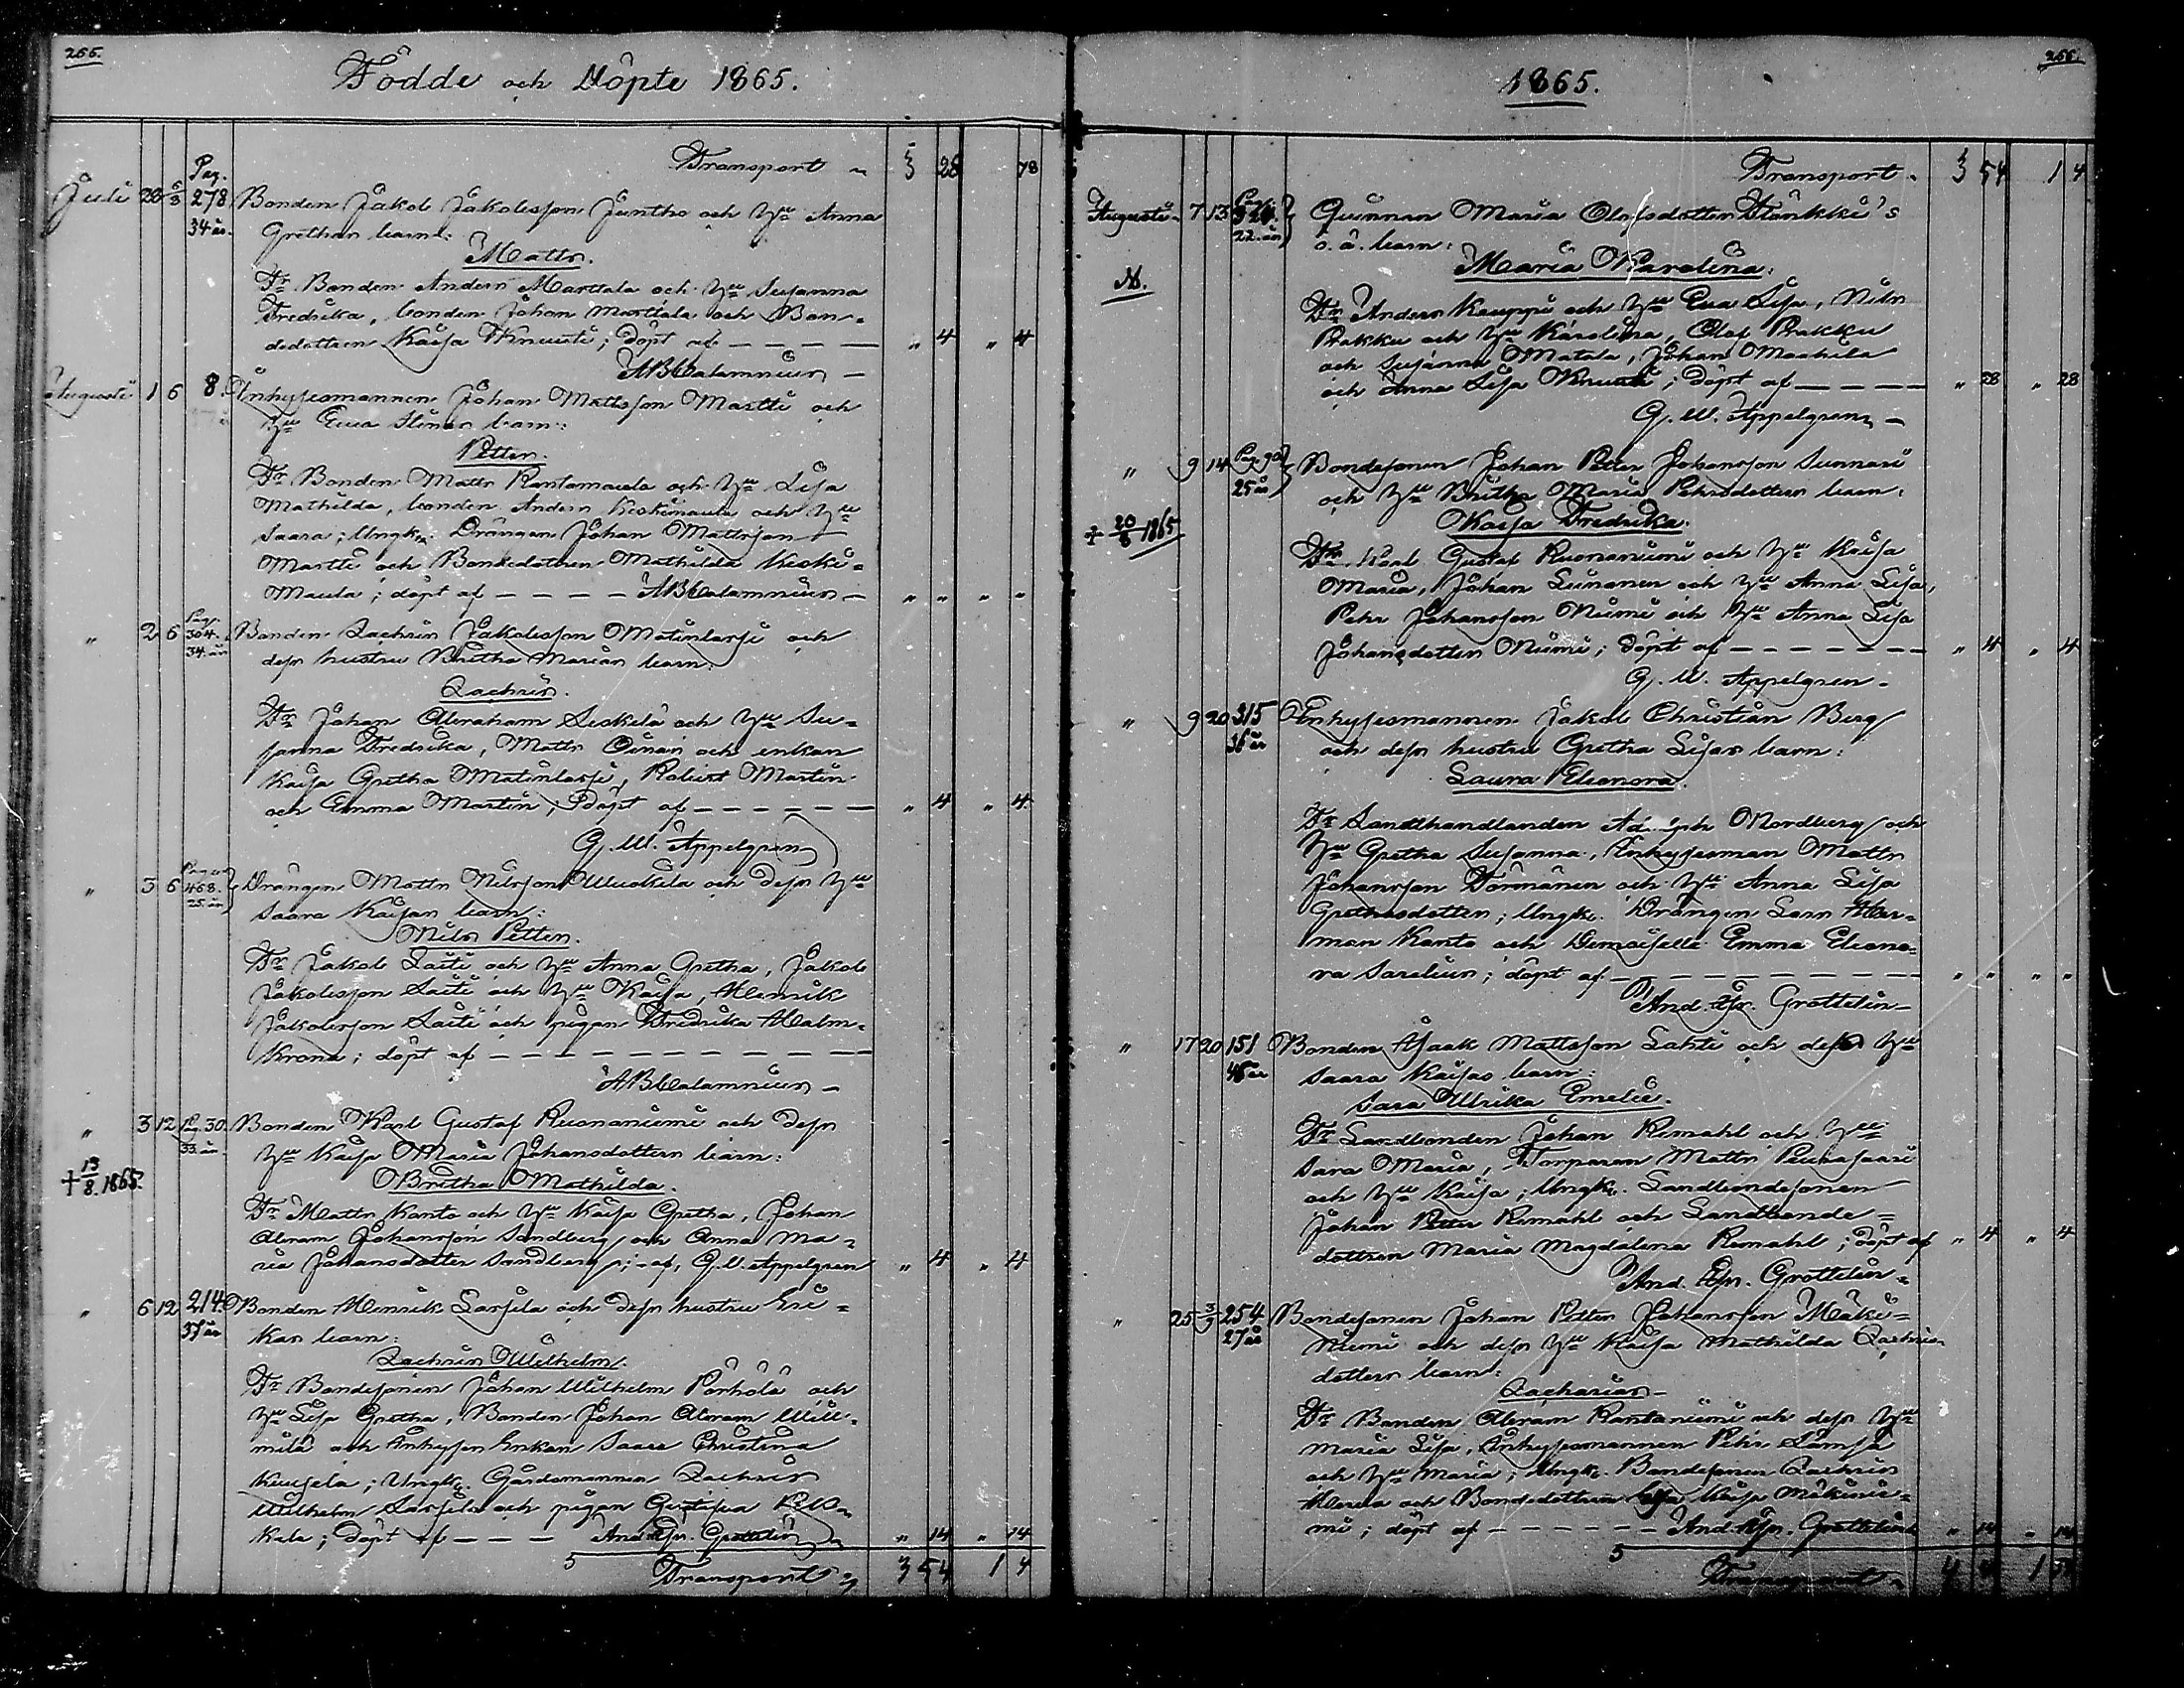 266.
Födde och Döpte 1865.
Transport 3 28 78
Juli 28 5/8 Pag. 278 34 år. Bonden Jakob Jakobsson Juntho och Hu Anna
Grethas barn:
Matts.
Fr Bonden Anders Marttala och Hu Susanna
Fredrika, bonden Johan Marttala och Bon-
dedottern Kaisa Knuuti; döpt af — — — — " 4 " 4
A B Calamnius —
Augusti 1 6 8. Inhysesmannen Johan Mattsson Martti och
Hu Eva Stinas barn:
Petter.
Fr Bonden Matts Rantamaula och Hu Lisa
Mathilda, bonden Anders Keskimaula och Hu
Saara; Ungk. Drängen Johan Mattsson
Martti och Bondedottren Mathilda Keski-
Maula; döpt af — — — — A B Calamnius — " " " "
" 2 6 Pag. 304. 34 år Bonden Zachris Jakobsson Matinlassi och
dess hustru Britha Marias barn:
Zachris.
Fr Johan Abraham Siskelä och Hu Su-
sanna Fredrika, Matts Oinas och enkan
Kaisa Gretha Matinlassi, Robert Martin
och Emma Martin; döpt af — — — — — — " 4 " 4
G. W. Appelgren
" 3 6 Pag. 468. 25 år Drängen Matts Nilsson Uuskila och dess Hu
Saara Kaisas barn:
Nils Petter.
Fr Jakob Laiti och Hu Anna Gretha, Jakob
Jakobsson Laiti och Hu Kaisa, Henrik
Jakobsson Laiti och pigan Fredrika Malm-
krona; döpt af — — — — — — — — — —
A B Calamnius —
" 3 12 Pag. 30. 33 år. Bonden Karl Gustaf Ruonaniemi och dess
Hu Kaisa Maria Johansdotters barn:
† 13/8. 1865. Britha Mathilda.
Fr Matts Kanto och Hu Kaisa Gretha, Johan
Abram Johansson Sandberg och Anna Ma-
ria Johansdotter Sandberg; af, G. W. Appelgren " 4 " 4
" 6 12 214. 37 år Bonden Henrik Sarsila och dess hustru Eri-
kas barn:
Zachris Wilhelm.
Fr Bondesonen Johan Wilhelm Pörhölä och
Hu Lisa Gretha, Bonden Johan Abram Will-
milä och Inhyses Enkan Saara Christina
Kuusela; Ungk. Gårdsmannen Zachris
Wilhelm Sarsila och pigan Gustava
kala; döpt af — — — And. Joh. Grottelin " 14 " 14
5 Transport 3 54 1 4
266.
1865.
Transport 3 54 1 4
Augusti 7 13 22 år Qvinnan Maria Olofsdotter Flänkki's
o. ä. barn:
Maria Karolina.
N.
Fr Anders Kauppi och Hu Eva Lisa, Nils
Prakku och Hu Karolina, Olof Prakku
och Susanna Matala, Johan Maahila
och Anna Lisa Knuuti; döpt af — — — — " 28 " 28
G. W. Appelgren —
" 9 14 Pag. 90 25 år Bondesonen Johan Petter Johansson Sunnari
och Hu Britha Maria Pehrsdotters barn:
† 20/8 1865 Kaisa Fredrika.
Fr Karl Gustaf Ruonaniemi och Hu Kaisa
Maria, Johan Luinonen och Hu Anna Lisa,
Pehr Johansson Niemi och Hu Anna Lisa
Johansdotter Niemi; döpt af — — — — — — — " 4 " 4
G. W. Appelgren —
" 9 20 315 36 år Inhysesmannen Jakob Christian Berg
och dess hustru Gretha Lisas barn:
Laura Eleonora.
Fr Landthandlanden Adolph Nordberg och
Hu Gretha Susanna, Inhysesman Matts
Johansson Törmänen och Hu Anna Lisa
Grethasdotter; Ungk. Drängen Lars Her-
man Kanto och Demoiselle Emma Eleono-
ra Sarelius; döpt af — — — — — — — — — " " " "
And. Joh. Grottelin —
" 17 20 151 45 år Bonden Isaak Mattsson Lahti och dess Hu
Saara Kaisas barn:
Sara Ulrika Emelie.
Fr Landbonden Johan Remahl och Hu
Sara Maria, Torparen Matts Peurasaari
och Hu Kaisa; Ungk. Landbondesonen
Johan Petter Remahl och Landbonde-
dottren Maria Magdalena Remahl; döpt af " 4 " 4
And. Joh. Grottelin —
" 25 3/9 254 27 år Bondesonen Johan Petter Johansson Mäki-
niemi och dess Hu Kaisa Mathilda Zachris-
dotters barn:
Zacharias —
Fr Bonden Abram Rantaniemi och dess Hu
Maria Lisa, Inhysesmannen Pehr Lämsä
och Hu Maria; Ungk. Bondesonen Zachris
och Bondedottren Kaisa Mäkinie-
mi; döpt af — — — — — — And. Joh. Grottelin " 14 " 14
5 Transport 4 1